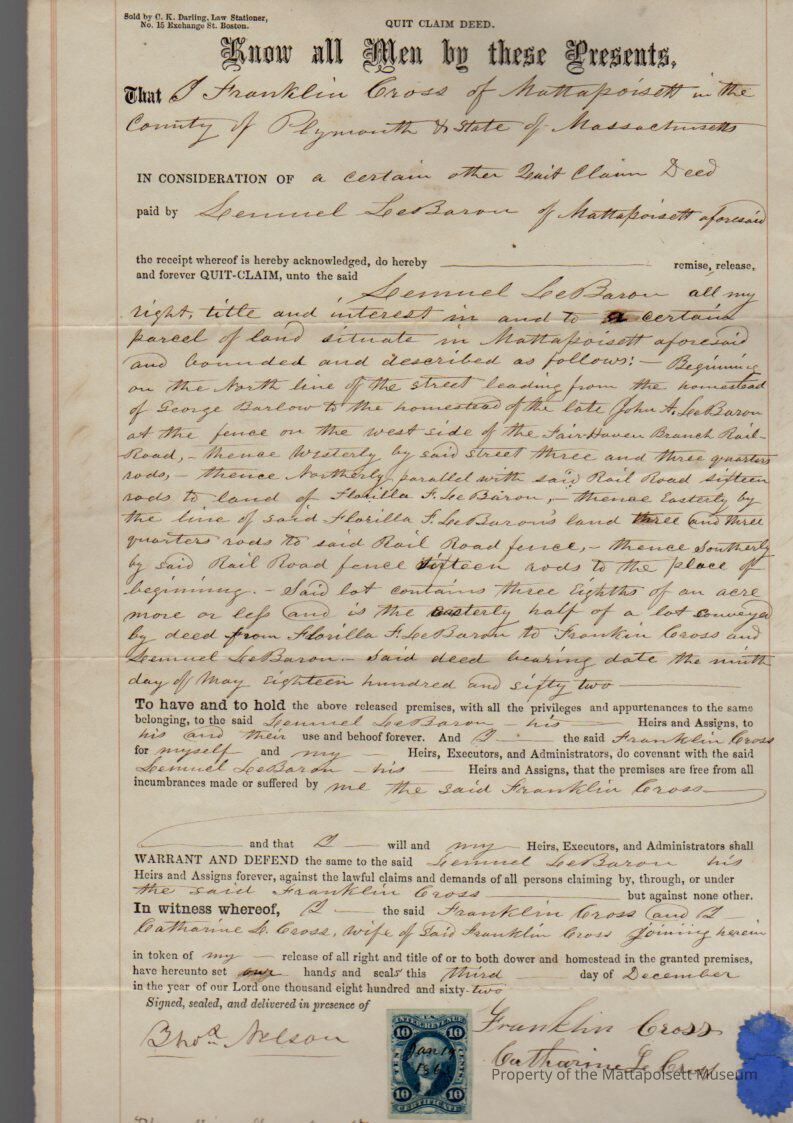 Sold by C. K. Darling, Law Stationer,
No. 15 Exchange St. Boston.
QUIT CLAIM DEED.
Know all Men by these Presents,
That I Franklin Cross of Mattapoisett in the
County of Plymouth & State of Massachusetts
IN CONSIDERATION OF a certain other Quit Claim Deed
paid by Lemuel LeBaron of Mattapoisett aforesaid
the receipt whereof is hereby acknowledged, do hereby remise, release,
and forever QUIT-CLAIM, unto the said
Lemuel LeBaron all my
right, title and interest in and to a certain
parcel of land situate in Mattapoisett aforesaid
and bounded and described as follows: - Beginning
on the North line of the street leading from the homestead
of George Barlow to the homestead of the late John A. LeBaron
at the fence on the west side of the Fair-Haven Branch Rail-
Road, - thence Westerly by said street three and three quarters
rods, - thence Northerly parallel with said Rail Road sixteen
rods to land of Florilla F. LeBaron, - thence Easterly by
the line of said Florilla F. LeBaron's land three and three
quarters rods to said Rail Road fence, - thence Southerly
by said Rail Road fence sixteen rods to the place of
beginning. - Said lot contains three Eighths of an acre
more or less and is the easterly half of a lot conveyed
by deed from Florilla F. LeBaron to Frankin Cross and
Lemuel LeBaron - said deed bearing date the ninth
day of May Eighteen hundred and sixty two
To have and to hold the above released premises, with all the privileges and appurtenances to the same
belonging, to the said Lemuel LeBaron - his Heirs and Assigns, to
his and their use and behoof forever. And I the said Franklin Cross
for myself and my Heirs, Executors, and Administrators, do covenant with the said
Lemuel LeBaron - his Heirs and Assigns, that the premises are free from all
incumbrances made or suffered by me the said Franklin Cross
and that I will and my Heirs, Executors, and Administrators shall
WARRANT AND DEFEND the same to the said Lemuel LeBaron his
Heirs and Assigns forever, against the lawful claims and demands of all persons claiming by, through, or under
the said Franklin Cross but against none other.
In witness whereof, I the said Franklin Cross and I
Catharine L. Cross, wife of said Franklin Cross joining herein
in token of my release of all right and title of or to both dower and homestead in the granted premises,
have hereunto set our hands and seals this third day of December
in the year of our Lord one thousand eight hundred and sixty-two
Signed, sealed, and delivered in presence of
Franklin Cross
Nelson
Catharine L. Cross
U.S.
INTER. REVENUE
10 10
Jan 19
TEN CENTS
10 10
CERTIFICATE
Property of the Mattapoisett Museum